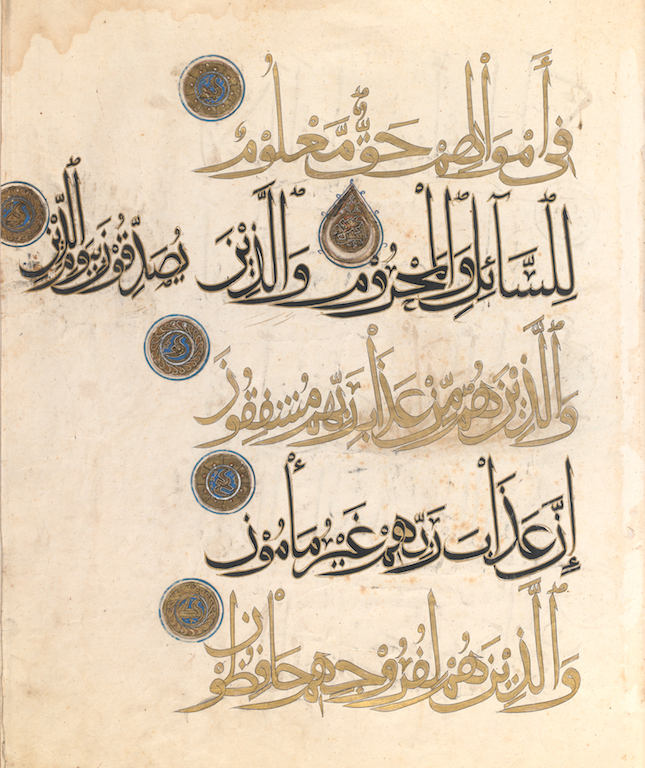 فِى أَمْوَالِهِمْ حَقٌّ مَّعْلُومٌ
لِلسَّآئِلِ وَالْمَحْرُومِ وَالَّذِيْنَ يُصَدِّقُوْنَ بِيَوْمِ الدِّيْنِ
وَالَّذِيْنَ هُمْ مِّنْ عَذَابِ رَبِّهِمْ مُشْفِقُوْنَ
إِنَّ عَذَابَ رَبِّهِمْ غَيْرُ مَأْمُوْنٍ
وَالَّذِيْنَ هُمْ لِفُرُوْجِهِمْ حَافِظُوْنَ